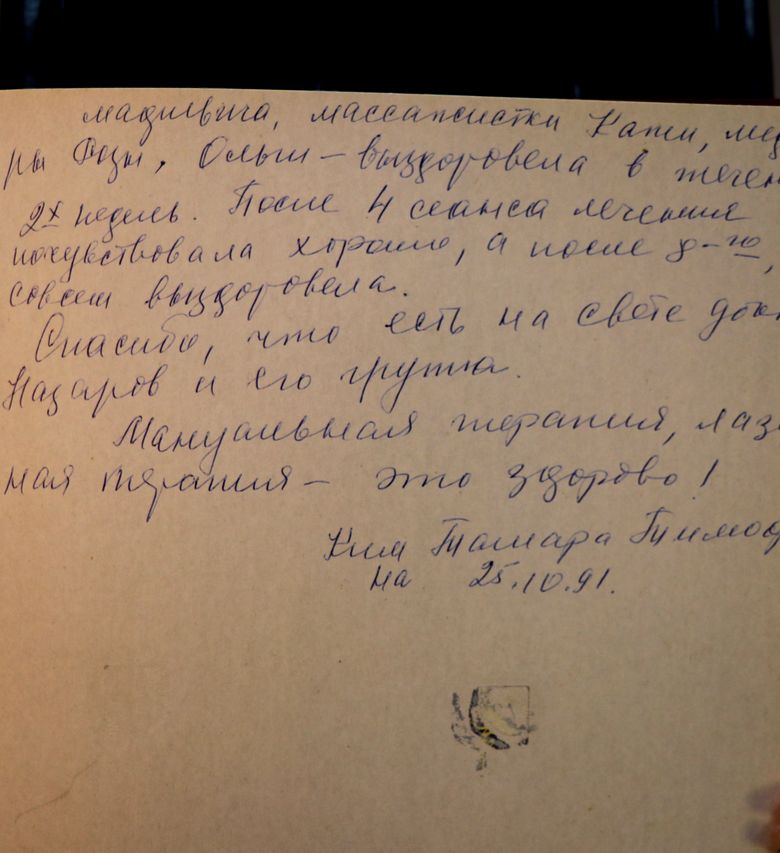 мадиевича, массажистки Кати, мед
ры Розы, Ольги – выздоровела в течен
2х недель. После 4 сеанса лечения
почувствовала хорошо, а после 8-го,
совсем выздоровела.
Спасибо, что есть на свете док
Назаров и его группа.
Мануальная терапия, лаз
ная терапия – это здорово!
Ким Тамара Тимоф
на 25.10.91.